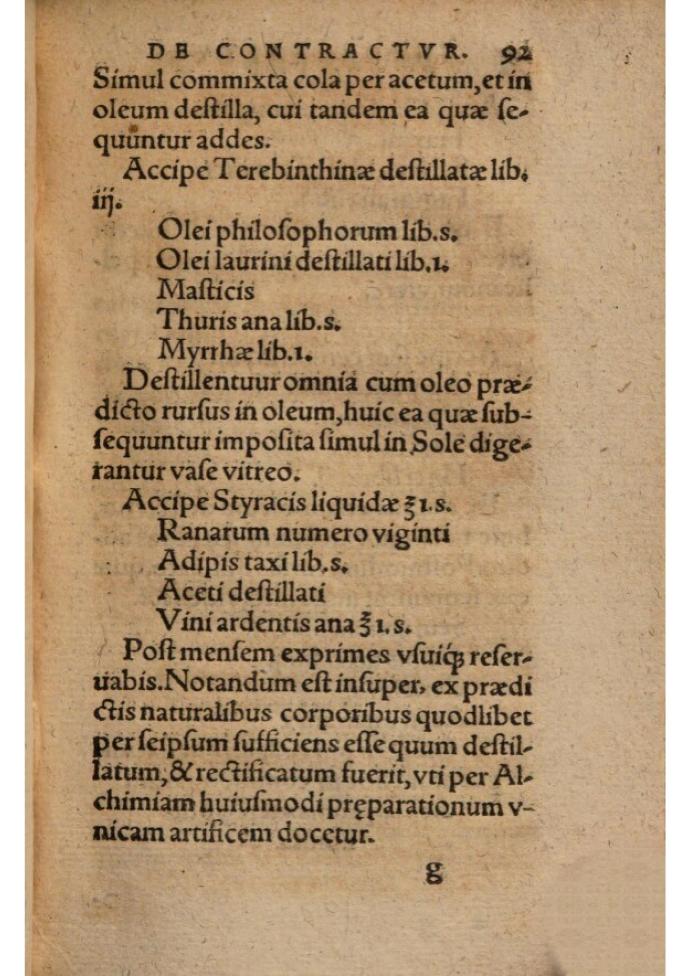 DE CONTRACTVR. 92
Simul commixta cola per acetum, et in
oleum destilla, cui tandem ea quæ se-
quuntur addes.
Accipe Terebinthinæ destillatæ lib.
iij.
Olei philosophorum lib.s.
Olei laurini destillati lib.1.
Masticis
Thuris ana lib.s.
Myrrhæ lib.1.
Destillentuur omnia cum oleo præ-
dicto rursus in oleum, huic ea quæ sub-
sequuntur imposita simul in Sole dige-
rantur vase vitreo.
Accipe Styracis liquidæ ℥1.s.
Ranarum numero viginti
Adipis taxi lib.s.
Aceti destillati
Vini ardentis ana ℥1.s.
Post mensem exprimes vsuiq́; reser-
uabis. Notandum est insuper, ex prædi
ctis naturalibus corporibus quodlibet
per seipsum sufficiens esse quum destil-
latum, & rectificatum fuerit, vti per Al-
chimiam huiusmodi pręparationum v-
nicam artificem docetur.
g